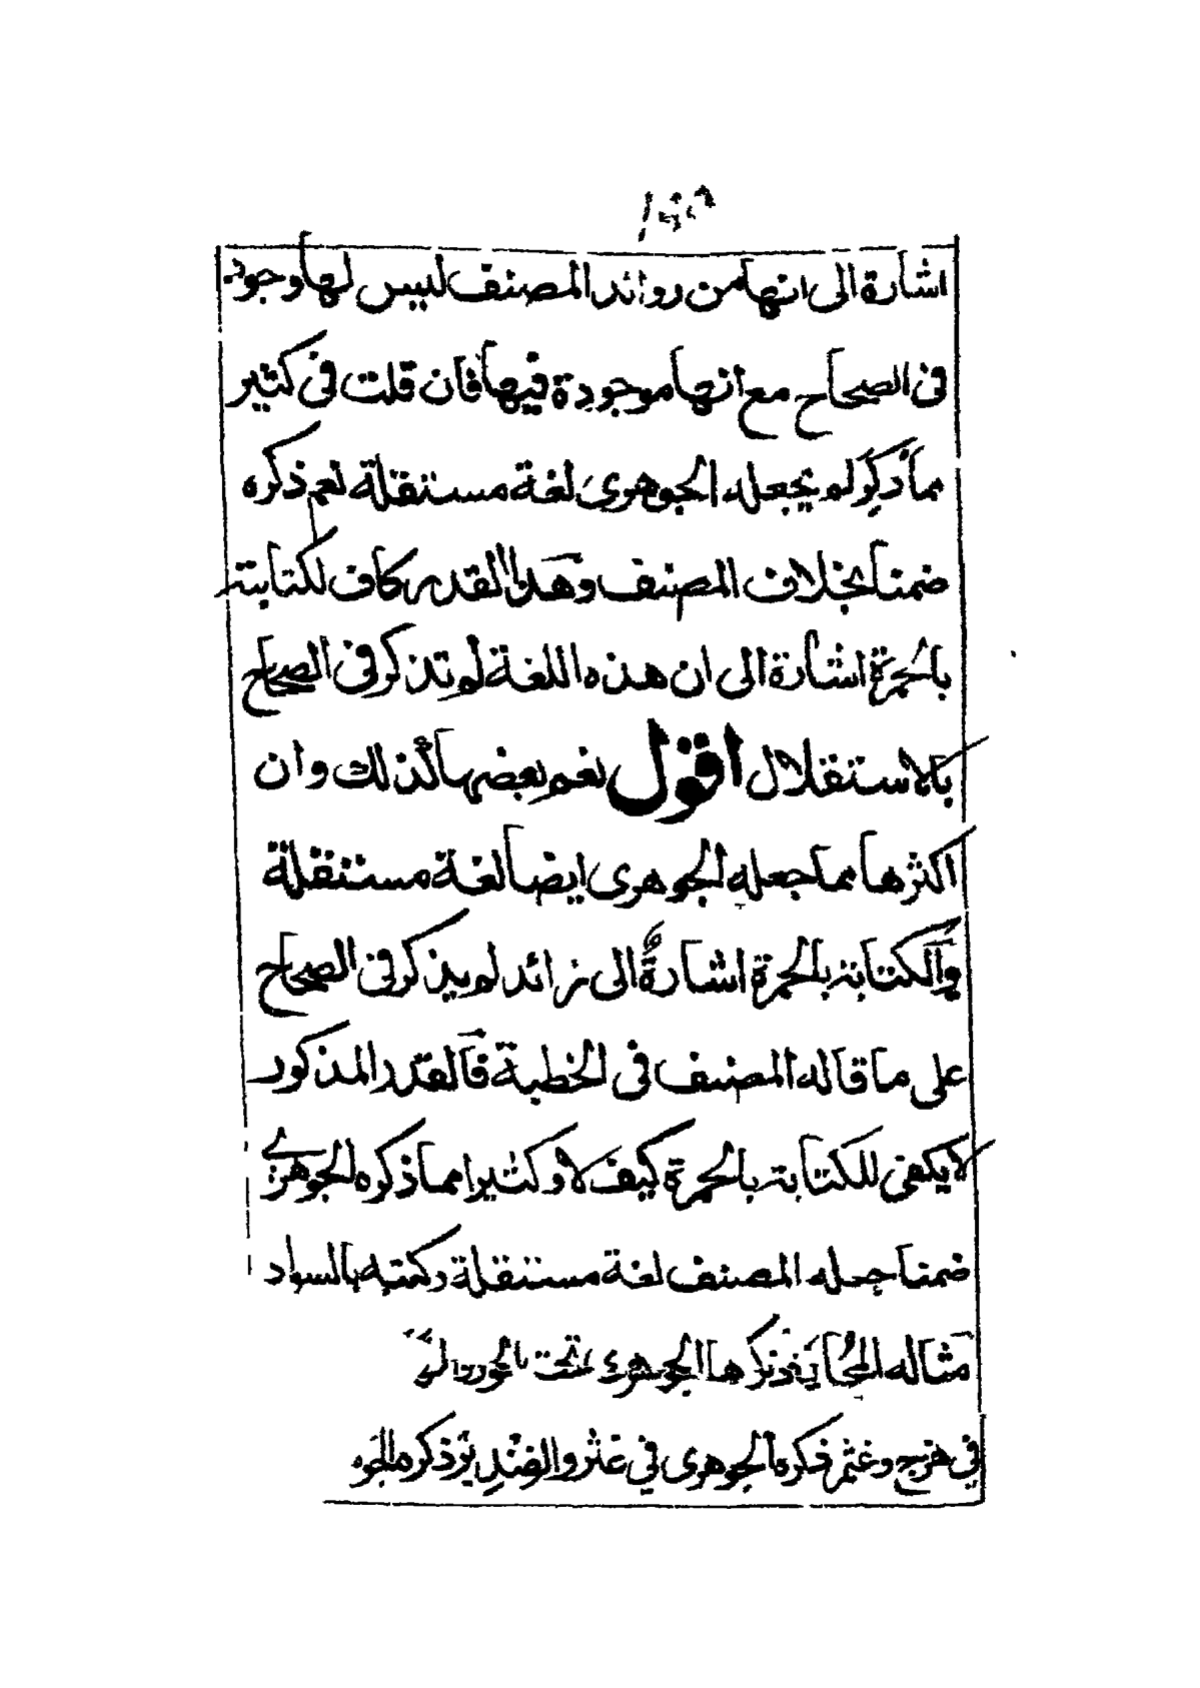 اشارة الى انها من زوائد المصنف ليس لها وجود
فى الصحاح مع انها موجودة فيها فان قلت فى كثير
مما ذكر لم يجعله الجوهرى لغة مستقلة نعم ذكره
ضمنا بخلاف المصنف وهذا القدر كاف لكتابته
بالحمرة اشارة الى ان هذه اللغة لم تذكر فى الصحاح
بالاستقلال اقول نعم بعضها كذلك وان
اكثرها مما جعله الجوهرى ايضا لغة مستقلة
والكتابة بالحمرة اشارة الى زائد لم يذكر فى الصحاح
على ما قاله المصنف فى الخطبة فالقدر المذكور
لا يكفى للكتابة بالحمرة كيف لا وكثيرا مما ذكره الجوهرى
ضمنا جعله المصنف لغة مستقلة وكتبه بالسواد
مثاله ذكرها الجوهرى تحت
في وغثمر ذكره الجوهرى في غثر ذكره الجوه